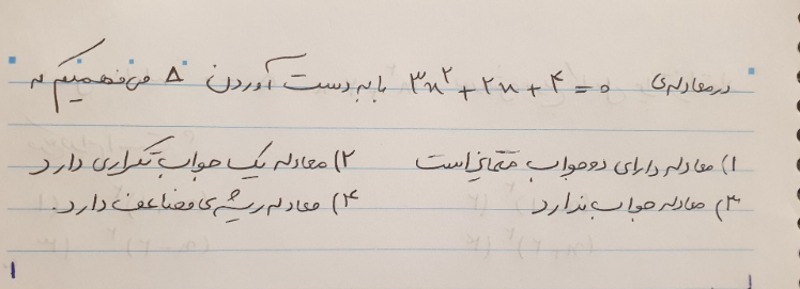 در معادله‌ی ۳x^۲ + ۲x + ۴ = ۰ با به دست آوردن Δ می‌فهمیم که
۱) معادله دارای دو جواب متمایز است ۲) معادله یک جواب تکراری دارد
۳) معادله جواب ندارد ۴) معادله ریشه‌ی مضاعف دارد.